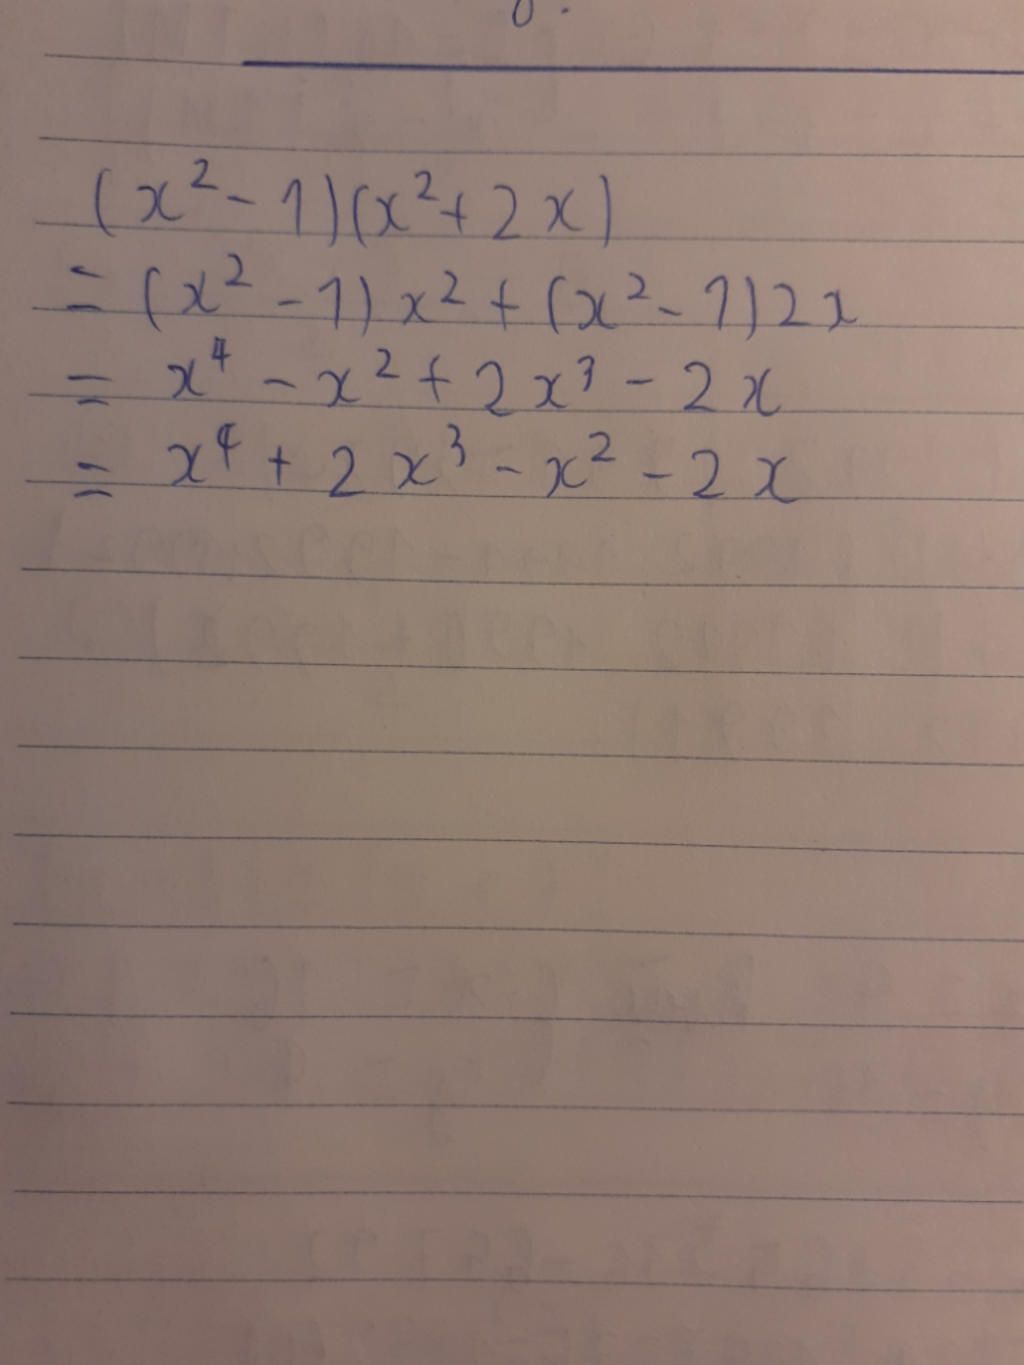 (x² - 1)(x² + 2x)
= (x² - 1) x² + (x² - 1) 2x
= x⁴ - x² + 2x³ - 2x
= x⁴ + 2x³ - x² - 2x